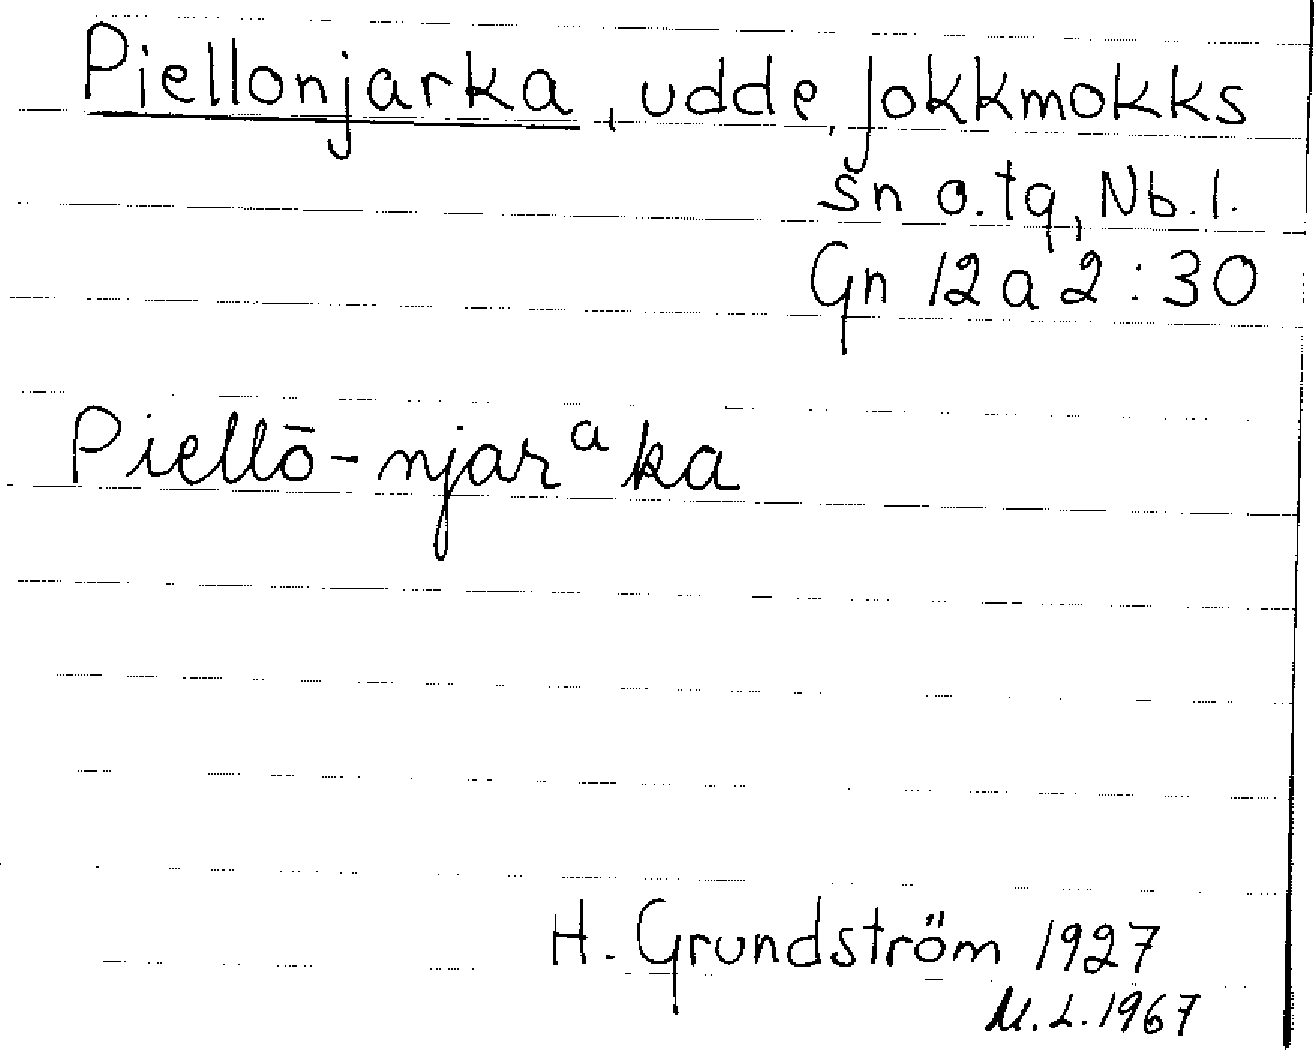 Piellonjarka, udde, Jokkmokks
sn o. tg, Nb. l.
Gn 12 a 2 : 30
Piellō-njarᵃka
H. Grundström 1927
M. L. 1967